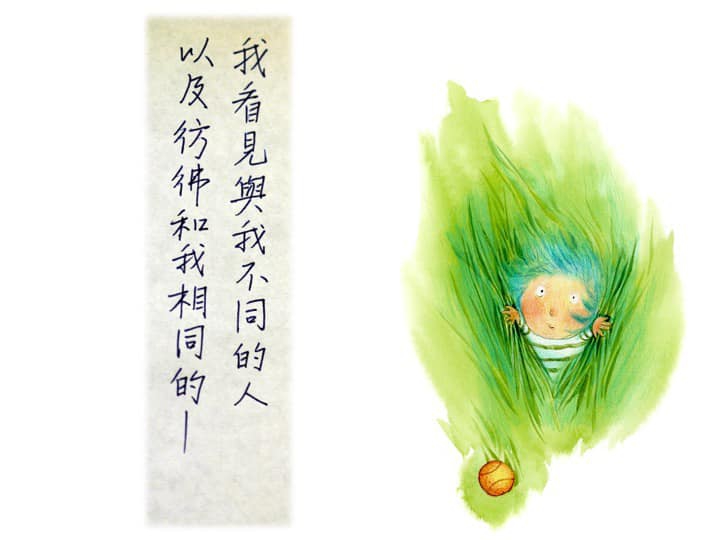 我看見與我不同的人
以及彷彿和我相同的—